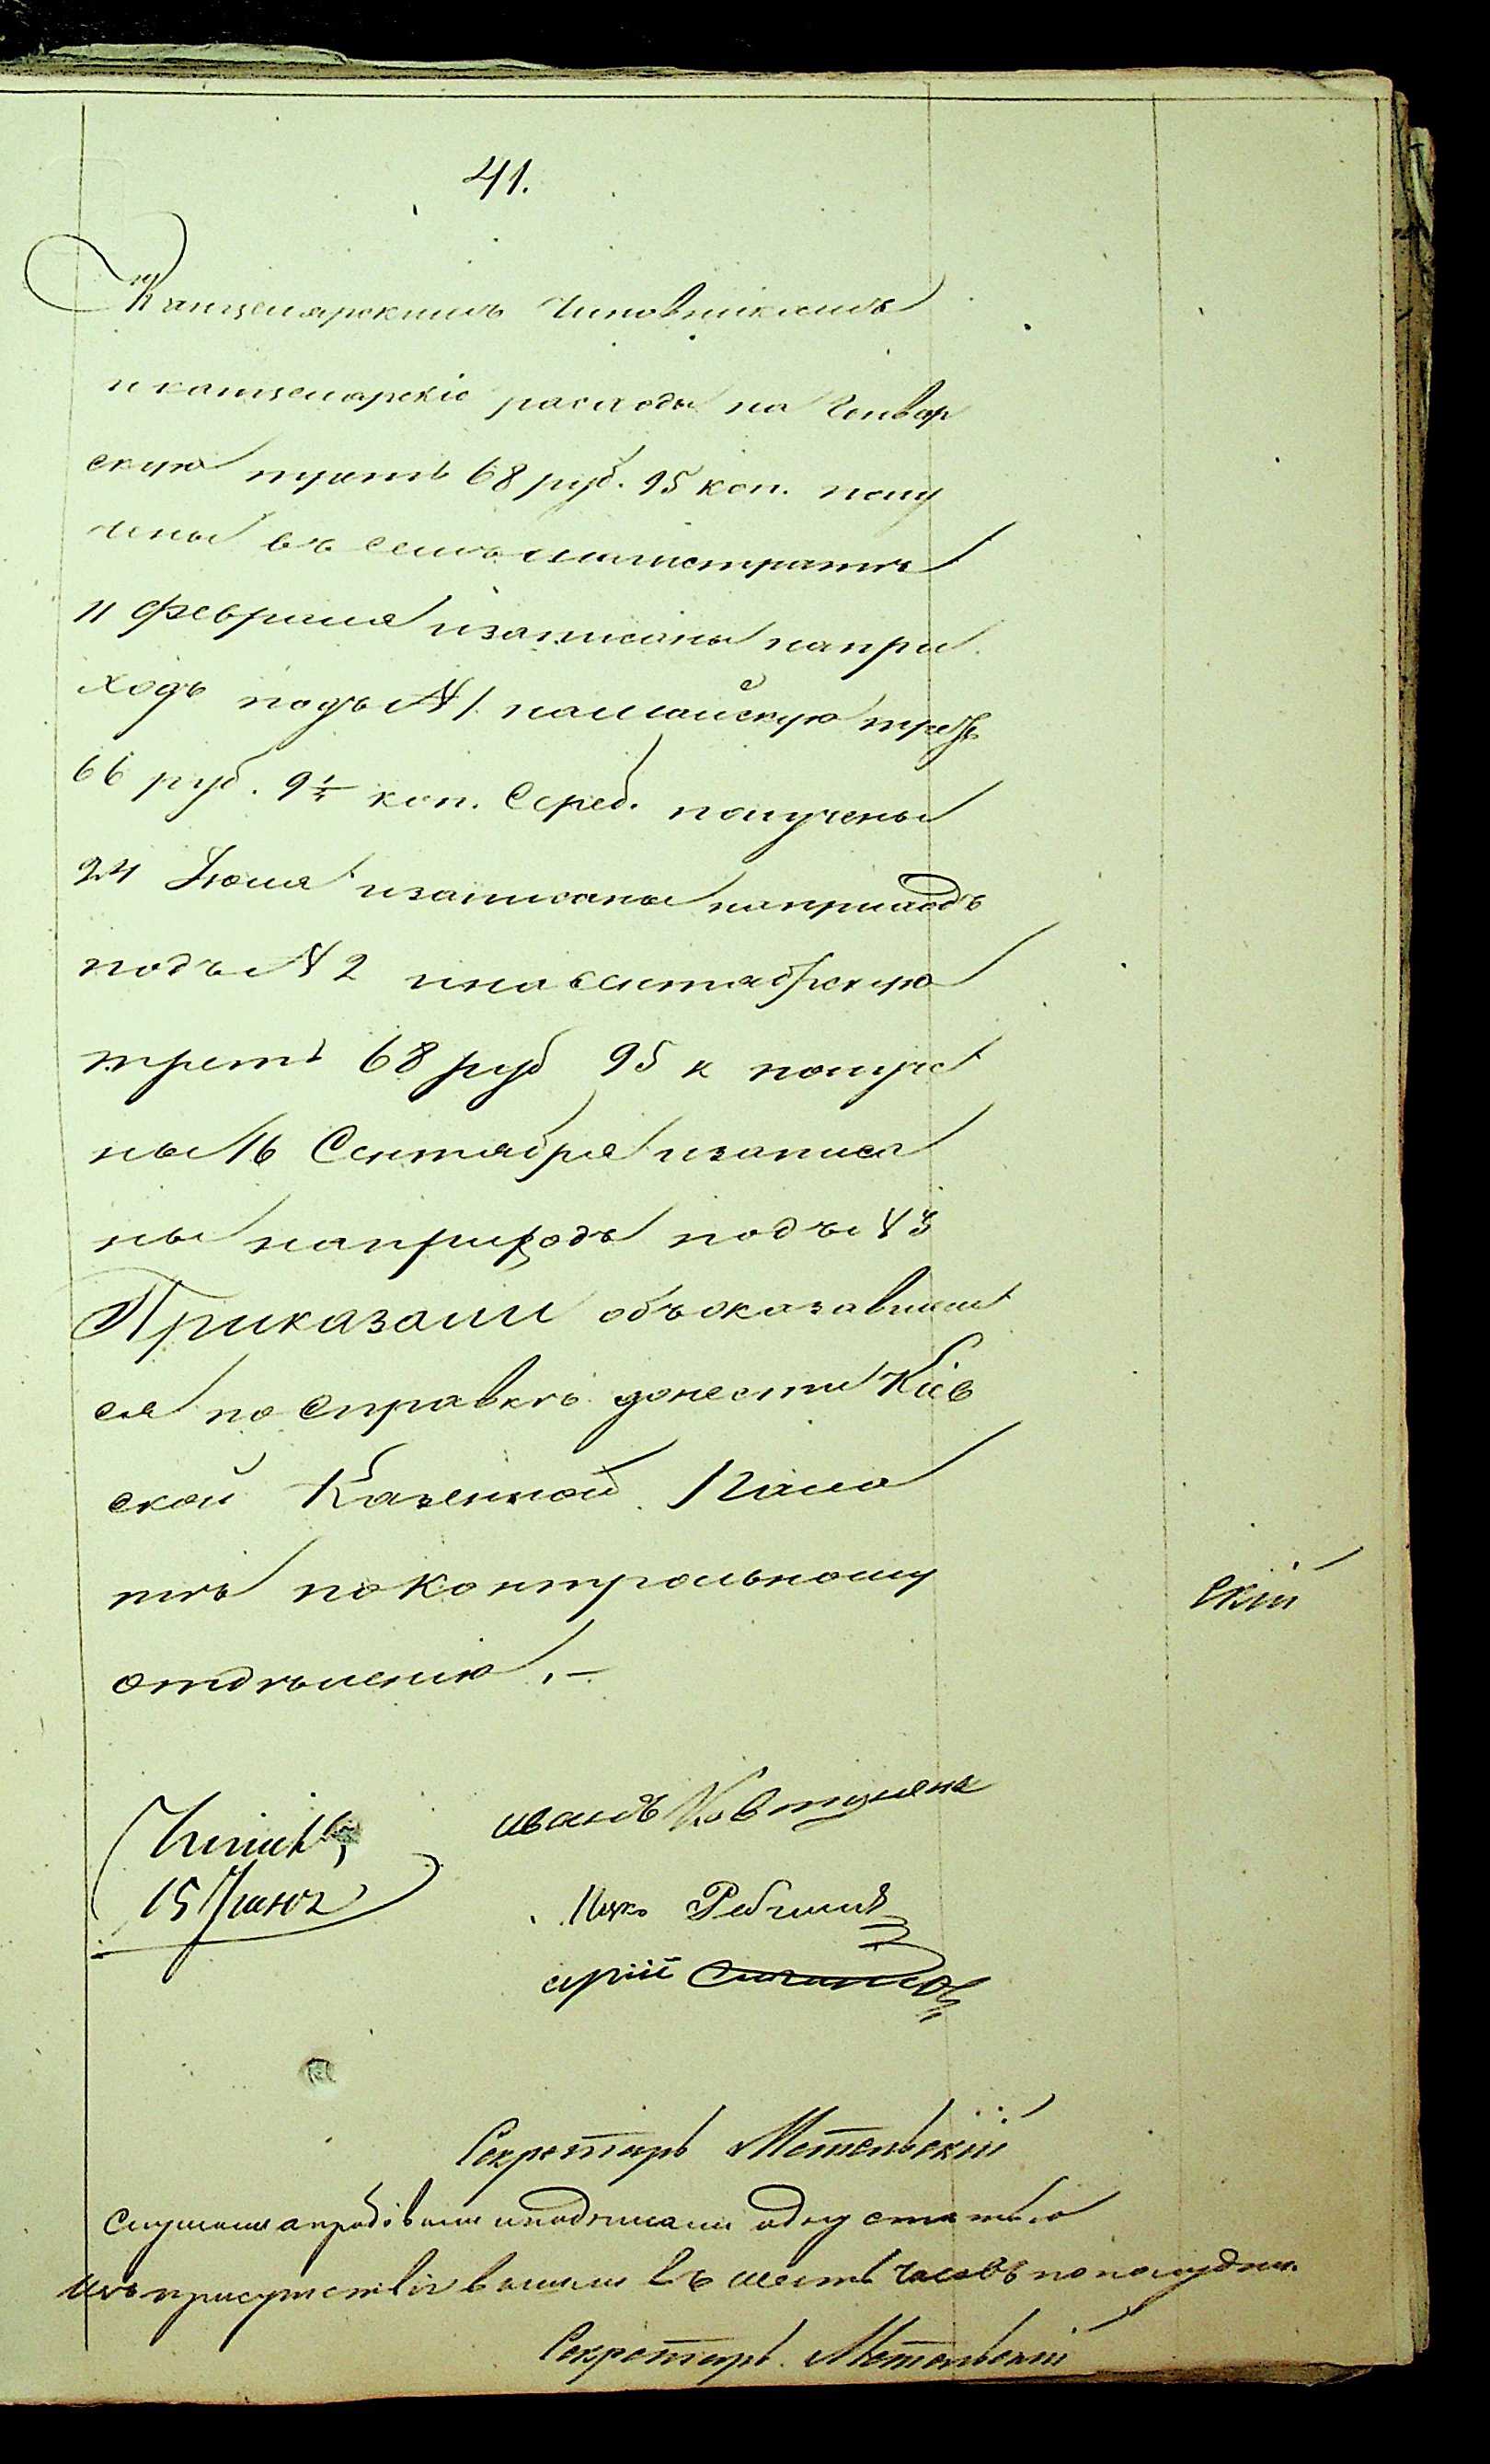 41.
Канцелярскимъ Чиновникамъ
и канцелярскіе расходы на Генвар
скую треть 68 руб. 95 коп. полу
чены въ семъ магистратѣ
11 Февраля изаписаны напри
ходъ подъ № 1. намайскую треть
66 руб. 9¼ коп. Сереб. получены
24 Іюля изаписаны наприходъ
подъ № 2 ина сентябрскую
треть 68 руб 95 к получе
ны 16 Сентября изаписа
ны наприходъ подъ № 3
Приказали объоказавшем
ся по справкѣ донести Кіев
ской Казенной Пала
тѣ по Контрольному
отдѣленію.–
скій
иванъ Ковтунена
15
Секретарь Метельскій
Слушали апробовали иподписали одну статью
изъ присутствія вышли въ шесть часовъ пополудни.
Секретарь Метельскій